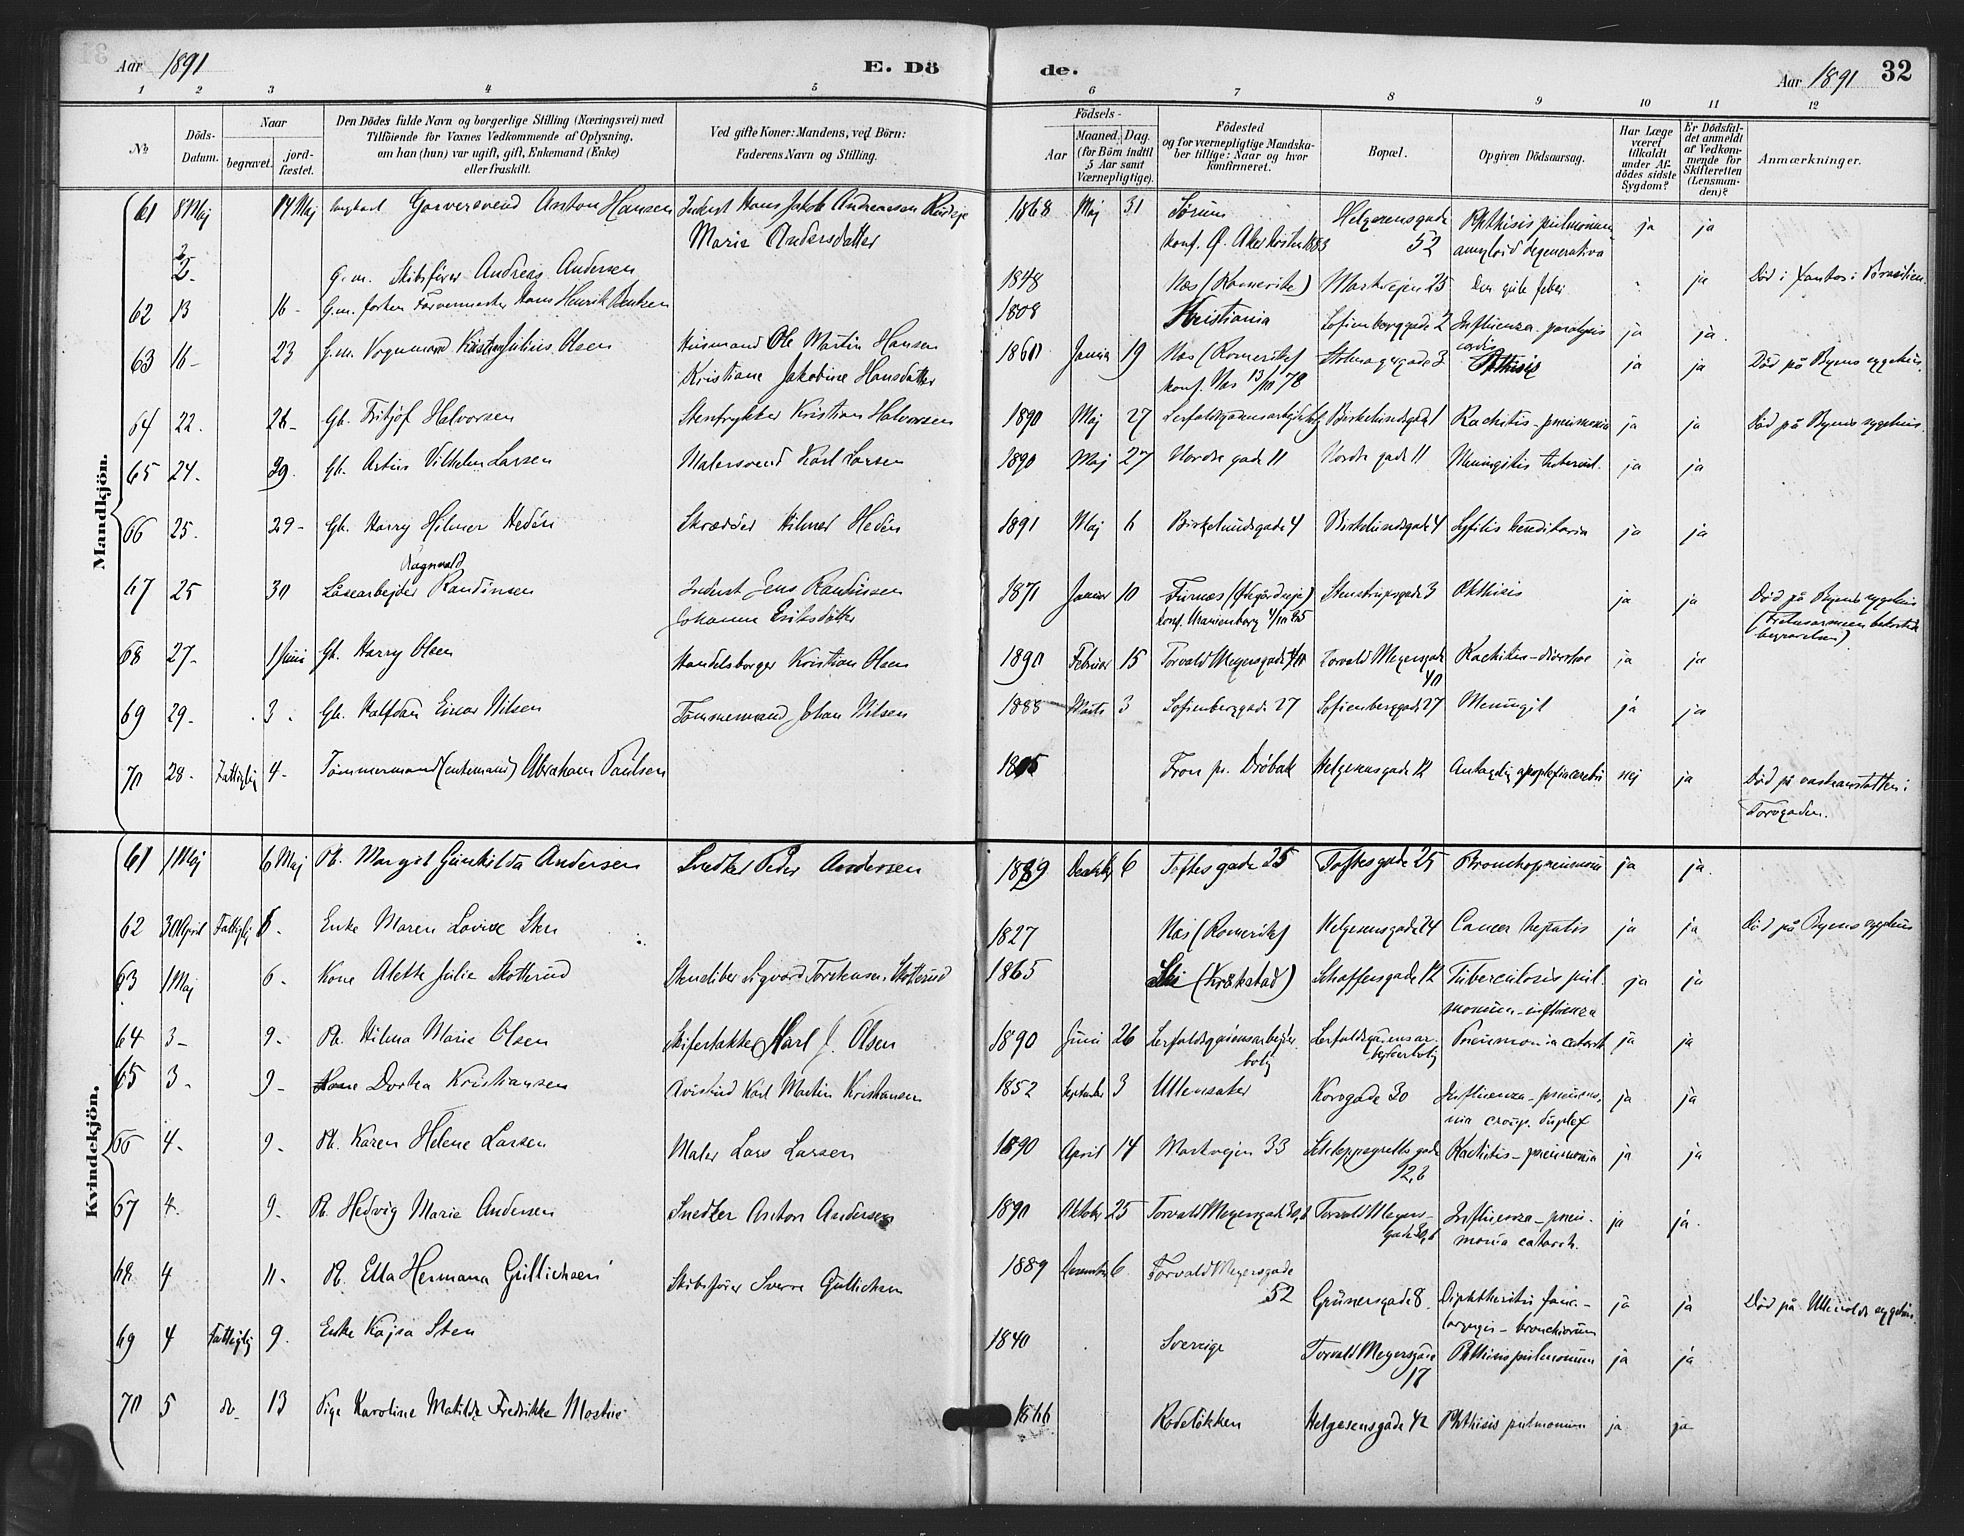 Aar 1891
E. Dö
de.
Aar 1891 32
1 2 3 4 5 6 7 8 9 10 11 12
№
Döds-
Datum.
Naar
begravet.
jord-
fæstet.
Den Dödes fulde Navn og borgerlige Stilling (Næringsvei) med
Tilföiende for Voxnes Vedkommende af Oplysning,
om han (hun) var ugift, gift, Enkemand (Enke)
eller fraskilt.
Ved gifte Koner: Mandens, ved Börn:
Faderens Navn og Stilling.
Födsels-
Aar
Maaned. Dag.
(for Börn indtil
5 Aar samt
Værnepligtige).
Födested
og for værnepligtige Mandska-
ber tillige: Naar og hvor
konfirmeret.
Bopæl.
Opgiven Dödsaarsag.
Har Læge
været
tilkaldt
under Af-
dödes sidste
Sygdom?
Er Dödsfal-
det anmeldt
af Vedkom-
mende for
Skifteretten
(Lensman-
den)?
Anmærkninger.
Mandkjön.
61 8 Maj 14 Maj Garversvend Anton Hansen Inderst Hans Jakob Andreassen 1868 Maj 31 Sörum Helgesensgade Phthisis pulmonum ja ja
Marie Andersdatter konf. Ø. Aker 1883 52 amyloid degenerativa
G.m. Skibsförer Andreas Andersen 1848 Næs (Romerike) Markvejen 25 Den gule feber ja Död i Santos i Brasilien
62 13 16 G.m. Farvermester Hans Henrik 1808 Kristiania Sofienberggade 2 Influenza-paralysis ja ja
cordis
63 16 23 G.m. Vognmand Julius Olsen Husmand Ole Martin Hansen 1860 Januar 19 Næs (Romerike) 3 Phthisis ja ja Död på Byens sygehus.
Kristiane Jakobine Hansdatter konf. Næs 13/10 78
64 22. 26 Gb. Fritjof Halvorsen Stentrykker Kristian Halvorsen 1890 Maj 27 Birkelundsgade 1 Rachitis-pneumonia ja ja Död på Byens sygehus.
65 24. 29. Gb. Artur Vilhelm Larsen Malersvend Karl Larsen 1890 Maj 27 Nordre gade 11 Nordre gade 11 Meningitis tubercul. ja ja
66 25. 29 Gb. Harry Hilmer Hedén Skrædder Hilmer Hedén 1891 Maj 6 Birkelundsgade 4 Birkelundsgade 4 Syfilis hereditaria ja ja
Ragnvald
67 25 30 Lösearbejder Randinsen Inderst Jens Randinsen 1871 Januar 10 Furnæs Stenstrupsgade 3 Phthisis ja ja Död på Byens sygehus
Johanne Eriksdatter konf. Marienborg 4/10 85 (Frelsesarmeen bekostede
begravelsen)
68 27 1 Juni Gb. Harry Olsen Handelsborger Kristian Olsen 1890 Februar 15 Torvald Meyersgade 40 Torvald Meyersgade Rachitis-diarrhoe ja ja
40
69 29 3 Gb. Halfdan Einar Nilsen Tömmermand Johan Nilsen 1888 Marts 3 Sofienberggade 27 Sofienberggade 27 Meningit ja ja
70 28 Fattiglig 4 Tömmermand (enkemand) Abraham Paulsen 1805 Fron pr. Dröbak Helgesensgade 12 Antagelig apoplexia cerebri nej ja Död på vaskeanstalten i
Torvgaden.
Kvindekjön.
61 1 Maj 6 Maj Pb. Margit Gunhilda Andersen Snedker Peder Andersen 1889 Decembr 6 Toftesgade 25 Toftesgade 25 Bronchopneumoni ja ja
62 30 April Fattiglig 5 Enke Maren Lovise Sten 1827 Næs (Romerike) Helgesensgade 24 Cancer hepatis ja ja Död på Byens sygehus
63 1 Maj 6 Kone Alette Julie Skotterud Stensliber Sigvard Torstensen Skotterud 1865 Ski (Kråkstad) Schaffersgade 12 Tuberculosis pul- ja ja
monum-influenza
64 3 9 Pb. Hilma Marie Olsen Skifertækker Karl J. Olsen 1890 Juni 26 Lerfaldsgaiensarbejder Lerfaldsgaiensar- Pneumonia catarrh ja ja
bolig bejderbolig
65 3 9 Kone Dortea Kristiansen Avisbud Karl Martin Kristiansen 1852 September 3 Ullensaker Korsgade 30 Influenza-pneumo- ja ja
nia croup. duplex
66 4 9 Pb. Karen Helene Larsen Maler Lars Larsen 1890 April 14 Markvejen 33 Schleppegrells gade Rachitis-pneumonia ja ja
67 4. 9 Pb. Hedvig Marie Andersen Snedker Anton Andersen 1890 Oktober 25 Torvald Meyersgade 30,b Torvald Meyers- Influenza-pneu- ja ja
gade 30,b monia catarrh.
68 4 11 Pb. Ella Hermana Gullichsen Skibsförer Sverre Gullichsen 1889 December 6 Torvald Meyersgade
52 Grünersgade 8 Diphtheritis fauc- ja ja Död på Ullevolds sygehus
laryngis-bronchiorum
69 4 Fattiglig 9 Enke Kajsa Sten 1840 Sverige Torvald Meyersgade Phthisis pulmonum ja ja
17
70 5 do 13 Pige Karoline Matilde Fredrikke Mostue 1866 Rodelökken Helgesensgade 42 Phthisis pulmonum ja ja